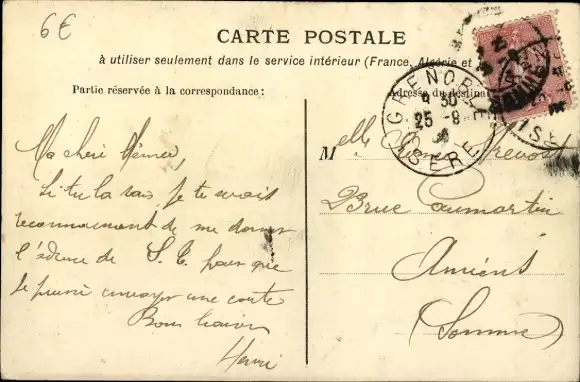 6€
CARTE POSTALE
à utiliser seulement dans le service intérieur (France, Algérie et
Partie réservée à la correspondance :
Adresse du destina
GRENOBLE
9 30
25 - 8
ISERE
Ma chère
Si tu la sais je te serais
de me donner
l'adresse de S. C. pour que
je puisse envoyer une carte
Bons baisers
Henri
Melle Prevost
Rue Caumartin
Amiens
(Somme)